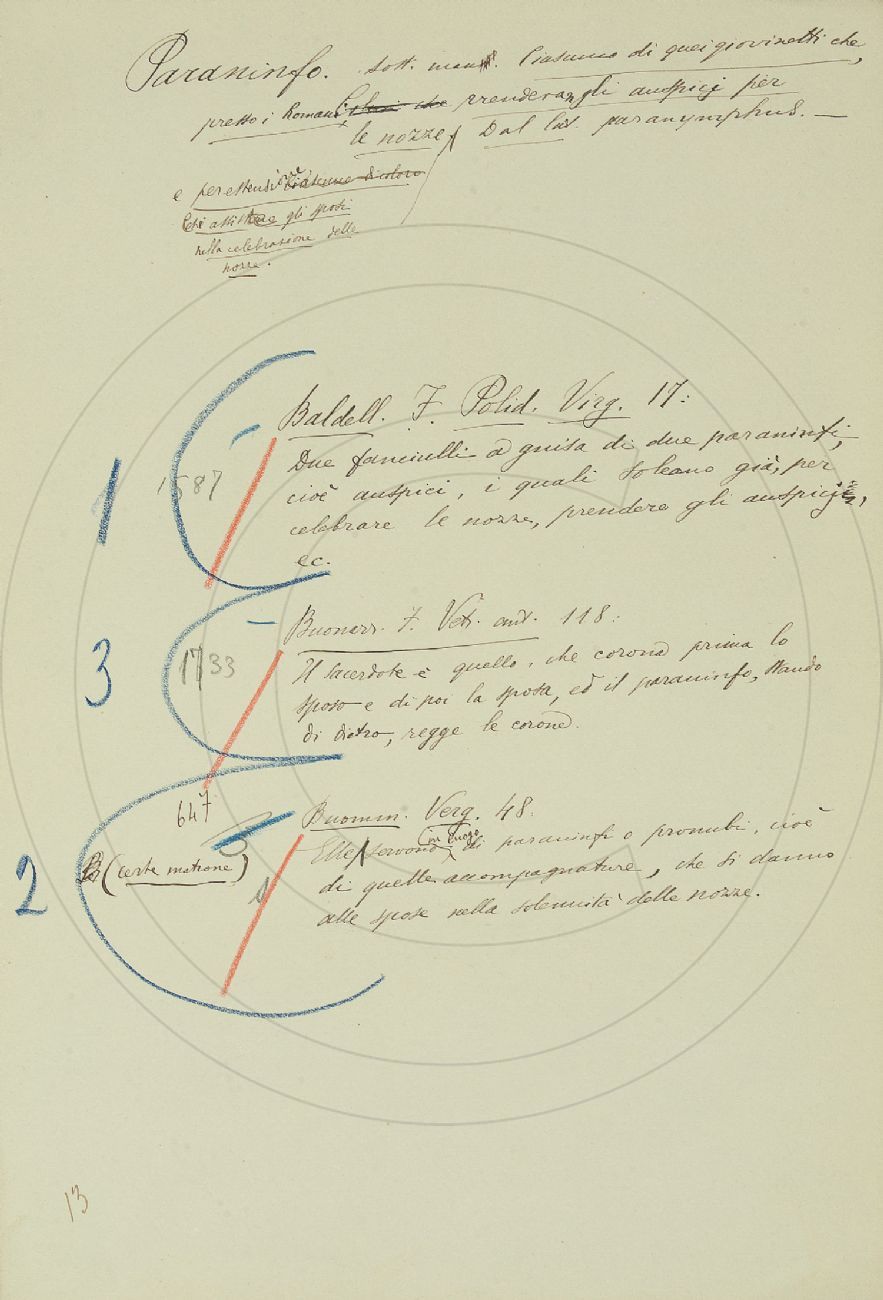 Paraninfo. Sost. masc. Ciascuno di quei giovinetti che,
presso i Romani, prendevan gli auspicj per
le nozze. Dal lat. paranymphus. —
e per estensione
Chi assiste gli sposi
nella celebrazione delle
nozze.
Baldell. F. Polid. Virg. 17:
Due fanciulli a guisa di due paraninfi,
1 1587
cioè auspici, i quali soleano già, per
celebrare le nozze, prendere gli auspicj,
ec.
Buonarr. F. Vet. ant. 118:
3 1733
Il sacerdote è quello, che corona prima lo
sposo e di poi la sposa, ed il paraninfo, stando
di dietro, regge le corone.
647
Buomm. Verg. 48:
2 (certe matrone)
Elle servono in luogo di paraninfi o pronubi, cioè
di quelle accompagnature, che si danno
alle spose nella solennità delle nozze.
13